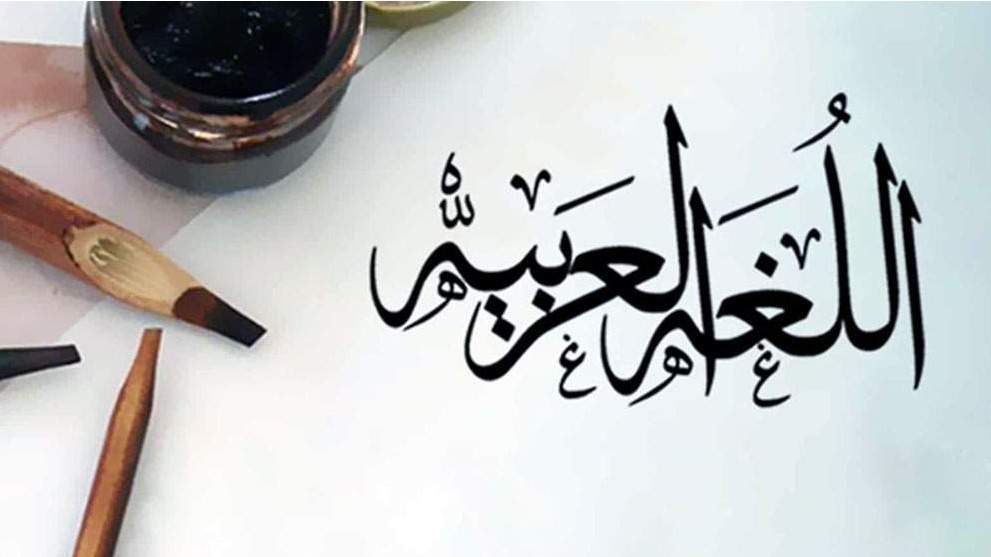 اللُغَه العَرَبيّه